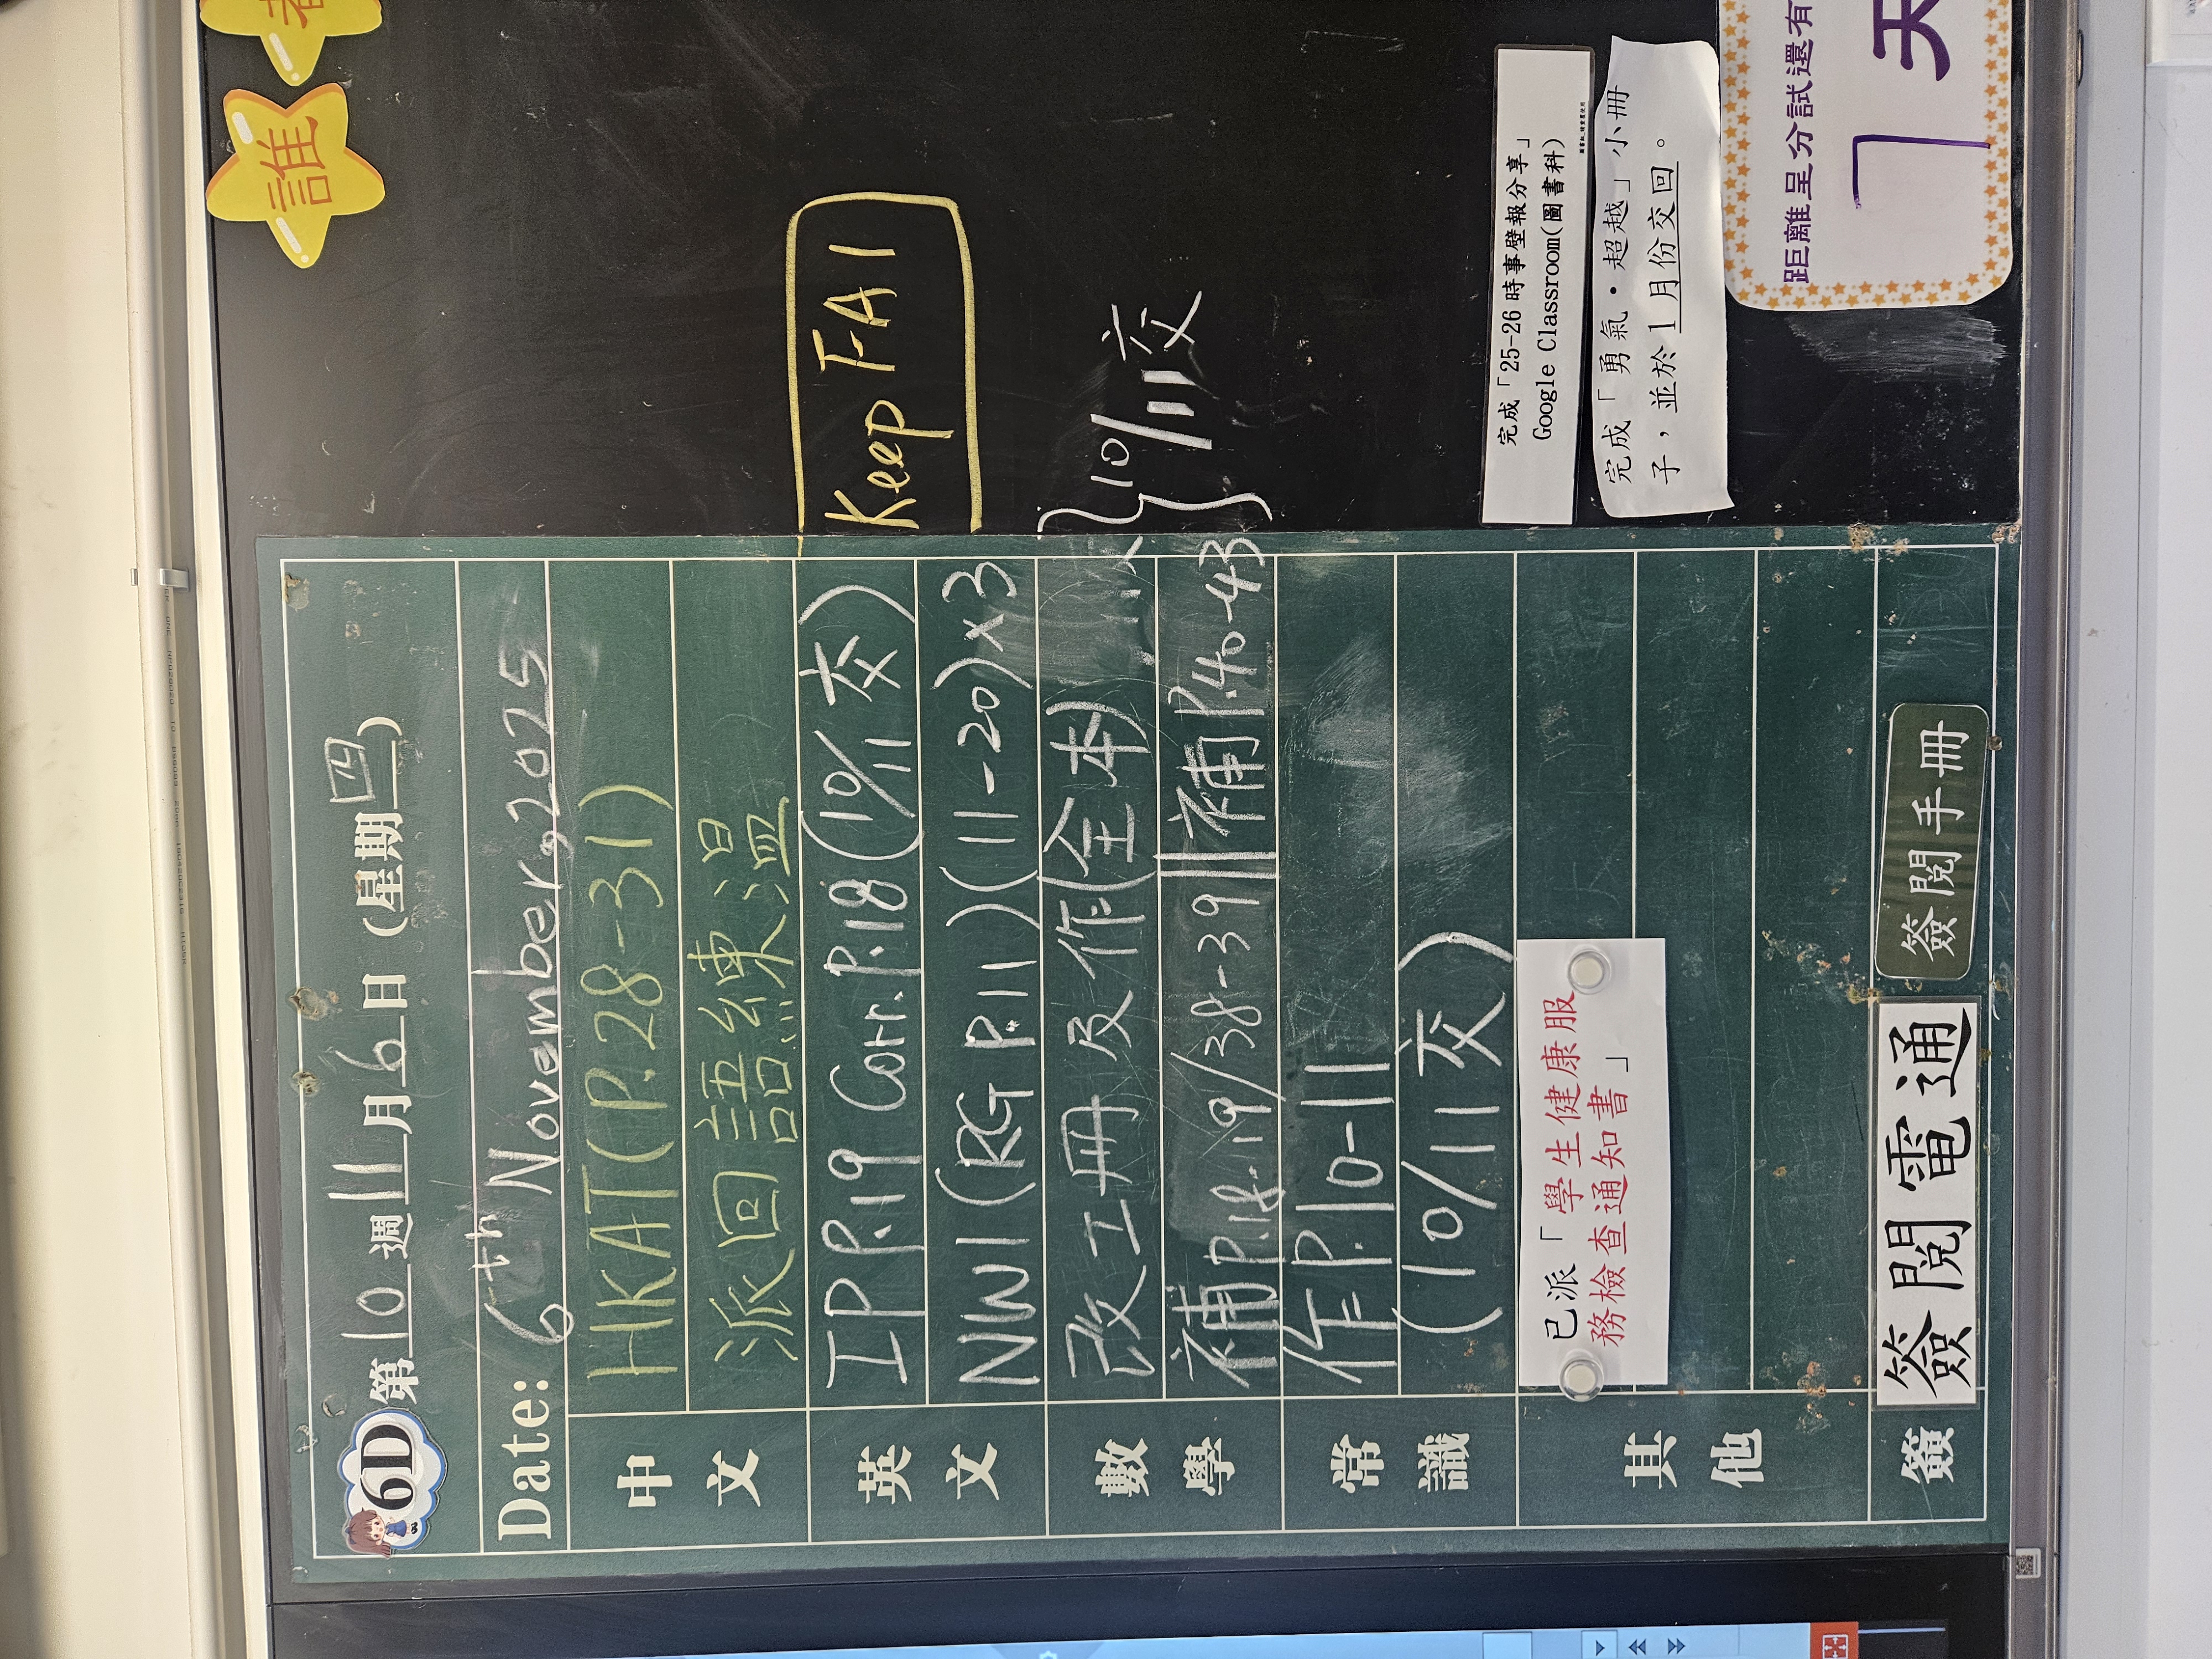 誰
6D 第10週 11月6日 (星期四)
Date: 6th November, 2025
中文
HKAT(P.28-31)
派回語練温
英文
IP P.19 Corr. P.18 (10/11 交)
Keep FA1
NW1 (RG P.11) (11-20)x3
數學
改工冊及作(全本)
補P.18-19/38-39||補P.40-43
} 10/11交
常識
作P.10-11
(10/11 交)
其他
已派「學生健康服
務檢查通知書」
完成「25-26 時事壁報分享」
Google Classroom(圖書科)
完成「勇氣·超越」小冊
子,並於1月份交回。
簽
簽閱電通
簽閱手冊
距離呈分試還有
7 天